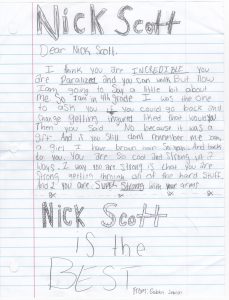 NICK SCOTT
Dear Nick Scott.
I think you are INCREDIBLE you
are Paralized and you can walk but Now
I am going to say a little bit about
me. So I am in 4th grade I was the one
to ask you if you could go back and
change getting injured would you
Then you said "No because it was a
gift And if you still dont remember me I am
a girl I have brown hair So yah. And back
to you. You are so cool and strong in 2
ways. 1 way you are strong is that you are
Strong getting through all of the hard Stuff
And 2 you are SUPER Strong with your arms
NICK SCOTT
IS the
BEST
From: